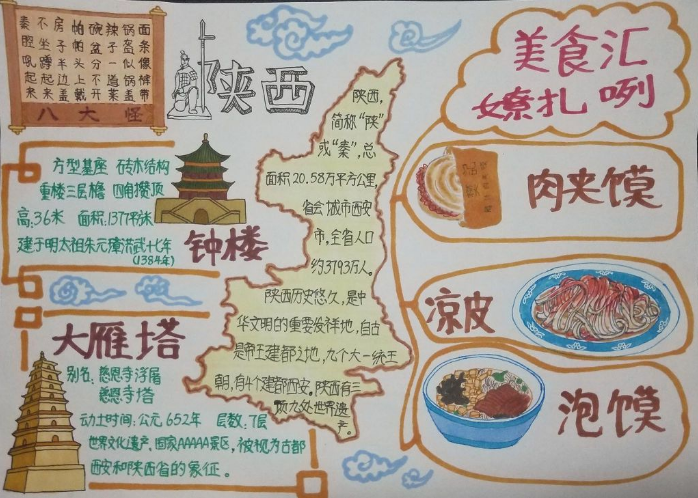 面条像裤带
锅盔似锅盖
辣子一道菜
碗盆分不开
帕帕头上戴
房子半边盖
不坐蹲起来
秦腔吼起来
八大怪
陕西
方型基座 砖木结构
重楼三层檐 四角攒顶
高:36米 面积:1377平米
建于明太祖朱元璋洪武十七年
(1384年)
钟楼
大雁塔
别名:慈恩寺浮屠
慈恩寺塔
动土时间:公元652年 层数:7层
世界文化遗产,国家AAAAA景区,被视为古都
西安和陕西省的象征。
陕西,
简称“陕”
或“秦”,总
面积20.58万平方公里,
省会城市西安
市,全省人口
约3793万人。
陕西历史悠久,是中
华文明的重要发祥地,自古
是帝王建都之地,九个大一统王
朝,有4个建都西安。陕西有三
项九处世界遗
产。
美食汇
嫽扎咧
肉夹馍
凉皮
泡馍